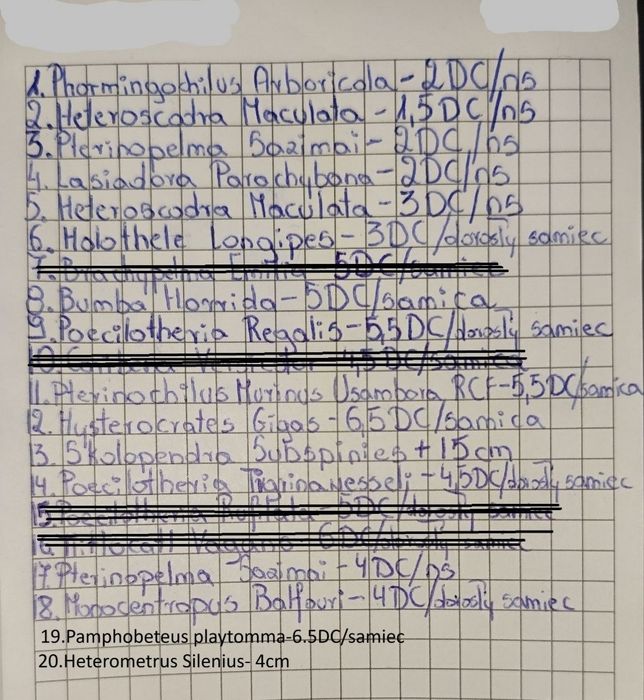 1. Phormingochilus Arboricola - 2DC/ns
2. Heteroscodra Maculata - 1,5DC/ns
3. Pterinopelma Sazimai - 2DC/ns
4. Lasiadora Parachybana - 2DC/ns
5. Heteroscodra Maculata - 3DC/ns
6. Holothele Longipes - 3DC/dorosly samiec
7. Brachypelma Emilia 5DC/samiec
8. Bumba Horrida - 5DC/samica
9. Poecilotheria Regalis - 5,5DC/dorosly samiec
10. 4,5DC/samica
11. Pterinochilus Murinus Usambara RCF - 5,5DC/samica
12. Hysterocrates Gigas - 6,5DC/samica
13. Skolopendra Subspinies + 15cm
14. Poecilotheria Tigrinawesseli - 4,5DC/dorosly samiec
15. Poecilotheria 5DC/dorosly samiec
16. 6DC/dorosly samiec
17. Pterinopelma Sazimai - 4DC/ns
18. Monocentropus Balfouri - 4DC/dorosly samiec
19.Pamphobeteus playtomma-6.5DC/samiec
20.Heterometrus Silenius- 4cm